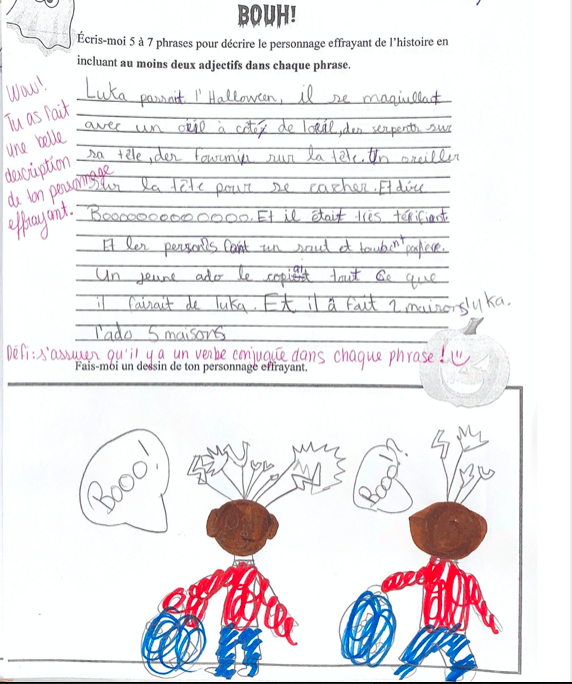 BOUH!
Écris-moi 5 à 7 phrases pour décrire le personnage effrayant de l'histoire en
incluant au moins deux adjectifs dans chaque phrase.
Wow!
Tu as fait
une belle
description
de ton personnage
effrayant.
Luka passait l'Halloween, il se maquillat
avec un œil à cotéz de lœil, des serpents sur
sa tête, des fourmis sur la tête. Un oreiller
sur la tête pour se cacher. Et dire
Booooooooooooo. Et il était très térifiant.
Et les persons font un saud et toubent
Un jeune ado le copiait tout ce que
il fairait de luka. Et il a fait 2 maisons luka.
l'ado 5 maisons
Défi: s'assurer qu'il y a un verbe conjugué dans chaque phrase!
Fais-moi un dessin de ton personnage effrayant.
Booo!
Booo!?